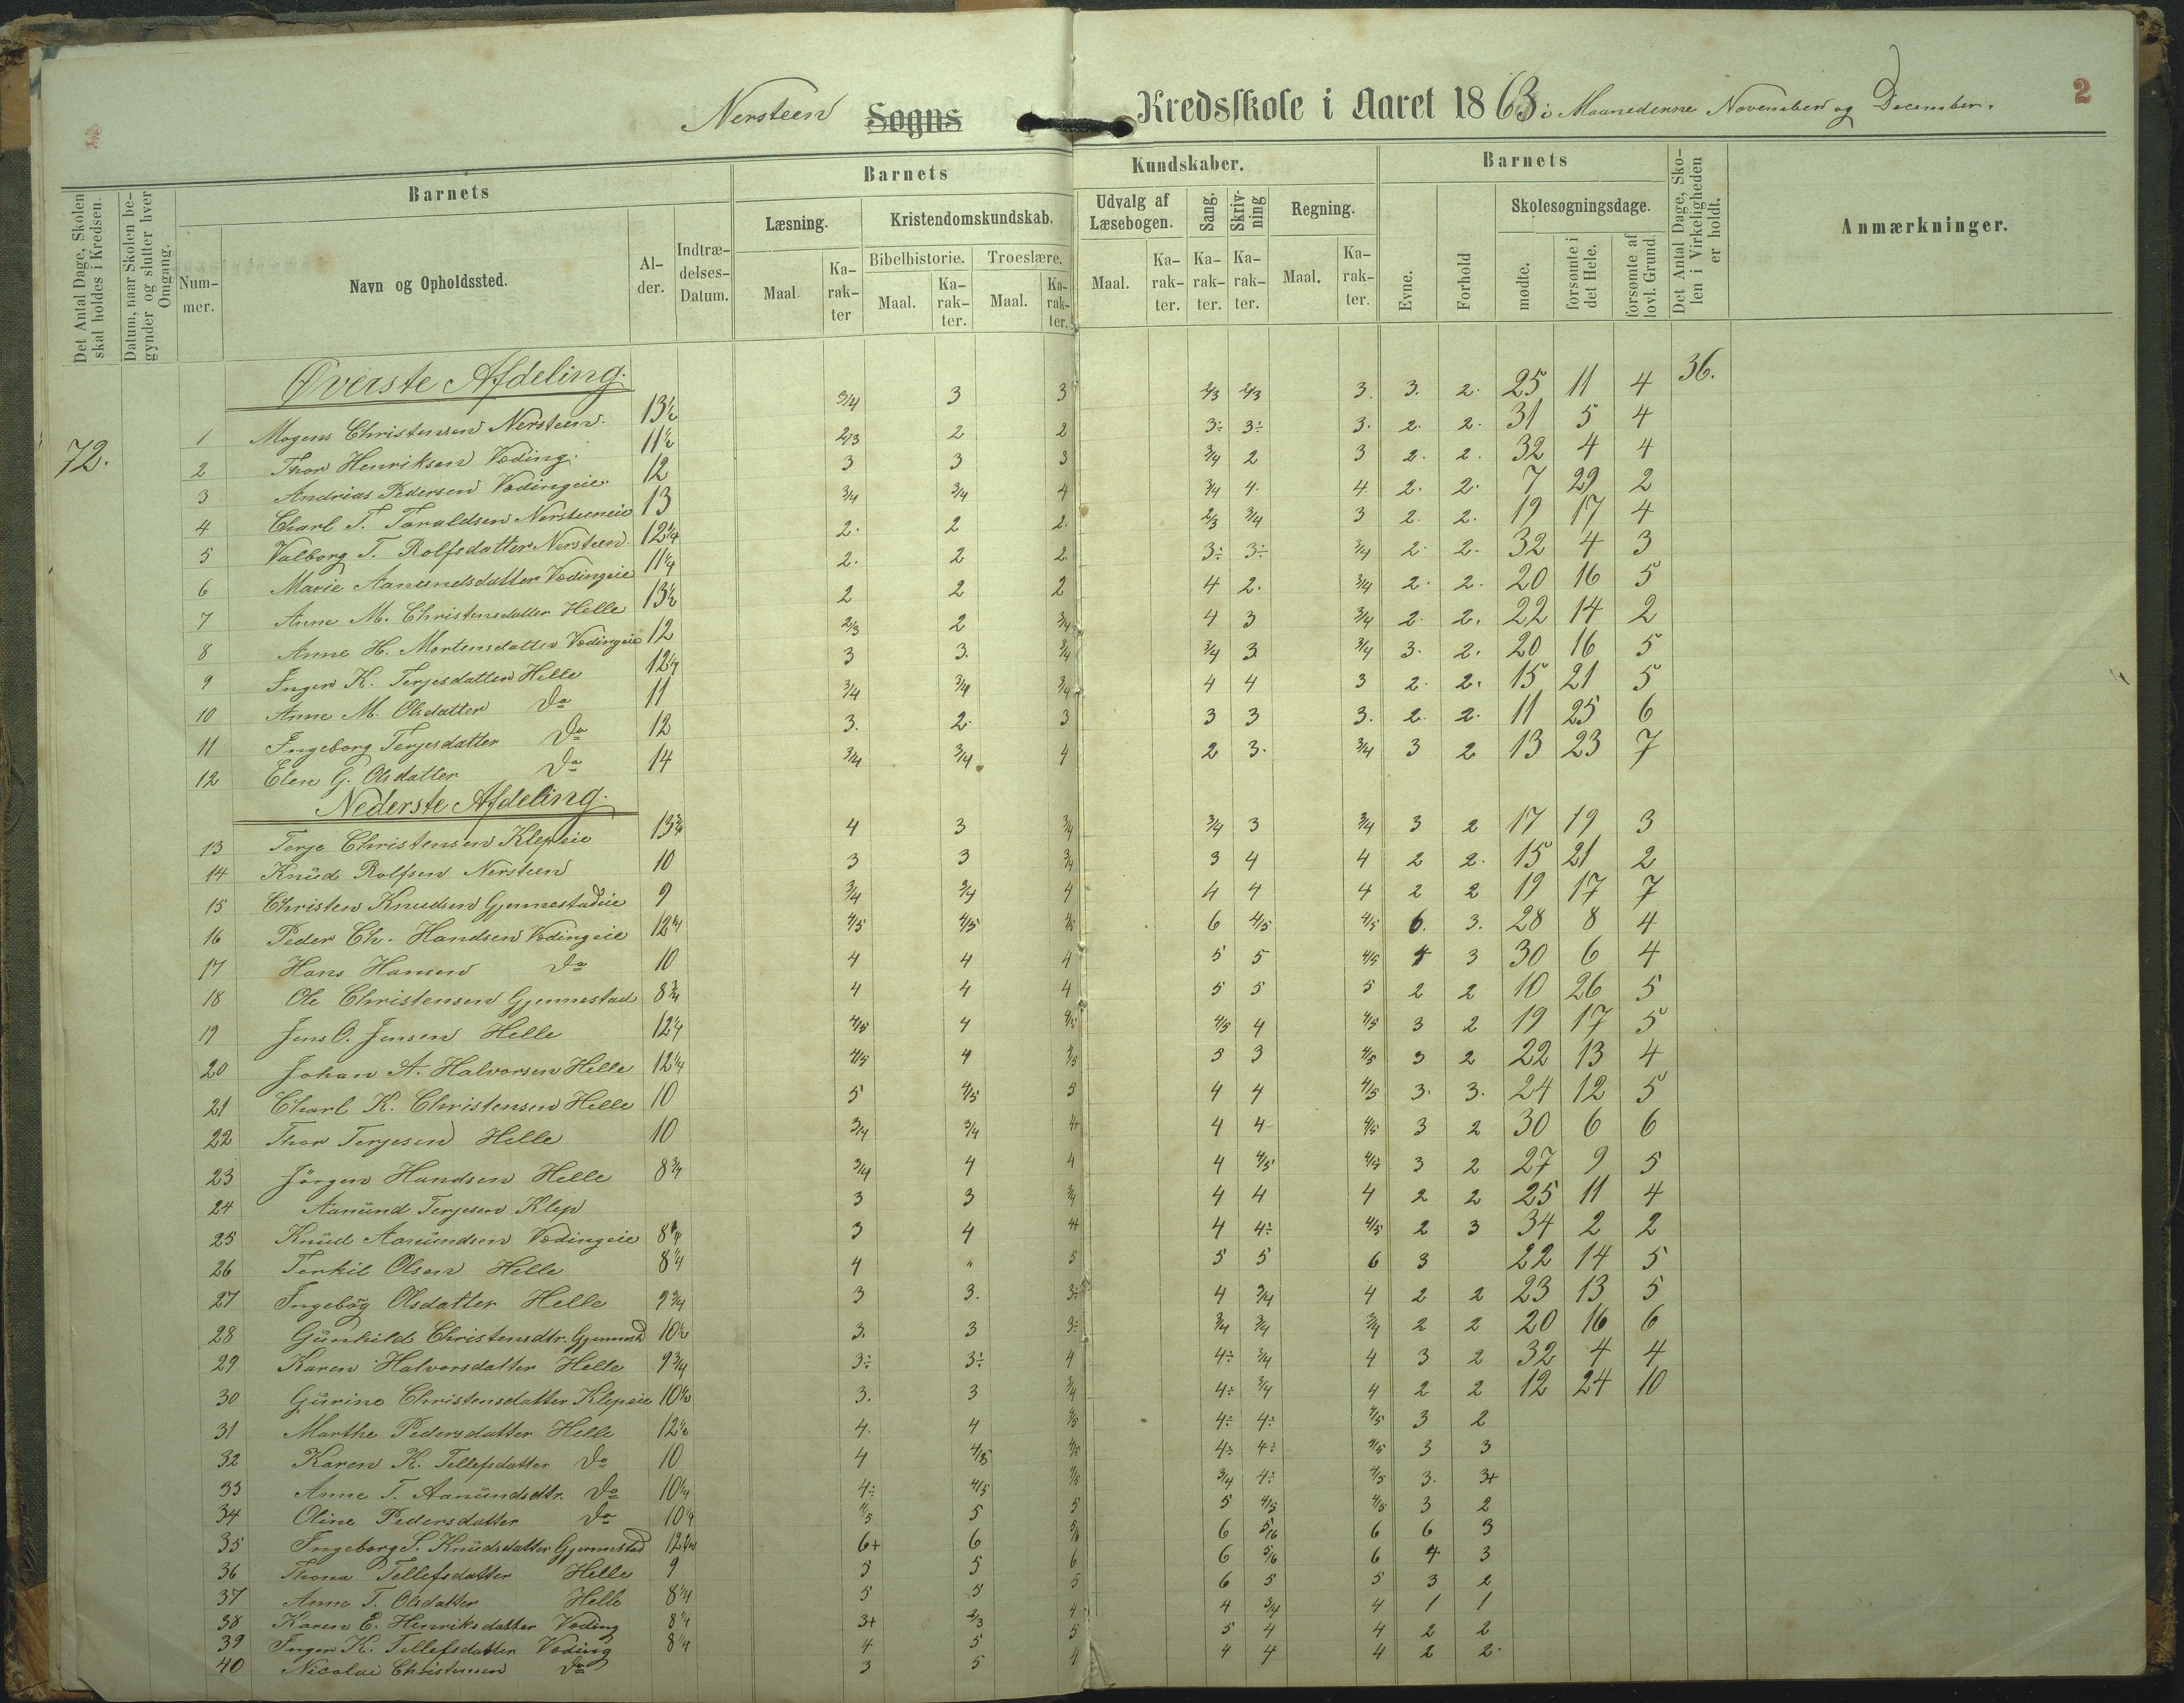 Nersteen Sogns Kredsskole i Aaret 1863 i Maanederne November og December.
2
Det Antal Dage, Skolen skal holdes i Kredsen.
Datum, naar Skolen begynder og slutter hver Omgang.
Barnets
Nummer.
Navn og Opholdssted.
Alder.
Indtrædelses-Datum.
Barnets Kundskaber.
Læsning.
Maal.
Karakter
Kristendomskundskab.
Bibelhistorie.
Maal.
Karakter.
Troeslære.
Maal.
Karakter.
Udvalg af Læsebogen.
Maal.
Karakter.
Sang.
Karakter.
Skrivning
Karakter.
Regning.
Maal.
Karakter.
Barnets
Evne.
Forhold
Skolesøgningsdage.
mødte.
forsømte i det Hele.
forsømte af lovl. Grund.
Det Antal Dage, Skolen i Virkeligheden er holdt.
Anmærkninger.
72.
36.
Øverste Afdeling.
1 Mogens Christensen Nersteen. 13½ 3/4 3 3 2/3 2/3 3. 3. 2. 25 11 4
2 Thor Henriksen Vøding. 11½ 2/3 2 2 3÷ 3÷ 3. 2. 2. 31 5 4
3 Andrias Pedersen Vødingeie. 12 3 3 3 3/4 2 3 2. 2. 32 4 4
4 Charl T. Taraldsen Nersteeneie 13 3/4 3/4 4 3/4 4. 4. 2. 2. 7 29 2
5 Valborg T. Rolfsdatter Nersteen 12¼ 2. 2 2. 2/3 3/4 3 2. 2. 19 17 4
6 Marie Aanundsdatter Vødingeie 11¼ 2. 2 2 3÷ 3÷ 3/4 2. 2. 32 4 3
7 Anne M. Christensdatter Helle 13½ 2 2 2 4 2. 3/4 2. 2. 20 16 5
8 Anne H. Mortensdatter Vødingeie 12 2/3 2 3/4 4 3 3/4 2. 2. 22 14 2
9 Inger K. Terjesdatter Helle 12¼ 3 3. 3/4 3/4 3 3/4 3. 2. 20 16 5
10 Anne M. Olsdatter Do 11 3/4 3/4 3/4 4 4 3 2. 2. 15 21 5
11 Ingeborg Terjesdatter Do 12 3. 2. 3 3 3 3. 2. 2. 11 25 6
12 Elen G. Olsdatter Do 14 3/4 3/4 4 2 3. 3/4 3 2 13 23 7
Nederste Afdeling.
13 Terje Christensen Klepeie 13¾ 4 3 3/4 3/4 3 3/4 3 2 17 19 3
14 Knüd Rolfsen Nersteen 10 3 3 3/4 3 4 4 2 2. 15 21 2
15 Christen Knudsen Gjennestadeie 9 3/4 3/4 4 4 4 4 2 2 19 17 7
16 Peder Ch. Handsen Vødingeie 12¼ 4/5 4/5 4/5 6 4/5 4/5 6. 3. 28 8 4
17 Hans Hansen Do 10 4 4 4 5 5 4/5 4 3 30 6 4
18 Ole Christensen Gjennestad 8¾ 4 4 4 5 5 5 2 2 10 26 5
19 Jens O. Jensen Helle 12¼ 4/5 4 4/5 4/5 4 4/5 3 2 19 17 5
20 Johan A. Halvorsen Helle 12¼ 4/5 4 4/5 5 3 4/5 3 2 22 13 4
21 Charl K. Christensen Helle 10 5 4/5 5 4 4 4/5 3. 3. 24 12 5
22 Thor Terjesen Helle 10 3/4 3/4 4+ 4 4 4/5 3 2 30 6 6
23 Jörgen Handsen Helle 8¾ 3/4 4 4 4 4/5 4/5 3 2 27 9 5
24 Aanünd Terjesen Klep 3 3 3/4 4 4 4 2 2 25 11 4
25 Knüd Aanündsen Vødingeie 8¼ 3 4 4+ 4 4÷ 4/5 2 3 34 2 2
26 Terkil Olsen Helle 8¼ 4 " 5 5 5 6 3 22 14 5
27 Ingebög Olsdatter Helle 9¾ 3 3. 3÷ 4 3/4 4 2 2 23 13 5
28 Günhild Christensdtr. Gjennestd 10½ 3. 3 3÷ 3/4 3/4 3/4 2 2 20 16 6
29 Karen Halvorsdatter Helle 9¾ 3÷ 3÷ 4 4÷ 3/4 4 3 2 32 4 4
30 Gürine Christensdatter Klepeie 10½ 3. 3 3/4 4÷ 3/4 4 2 2 12 24 10
31 Marthe Pedersdatter Helle 12½ 4. 4 4/5 4÷ 4÷ 4/5 3 2
32 Karen K. Tellefsdatter Do 10 4 4/5 4/5 4÷ 4÷ 4/5 3 3
33 Anne T. Aanündsdtr. Do 10¼ 4÷ 4/5 4/5 3/4 4÷ 4/5 3. 3+
34 Oline Pedersdatter Do 10¼ 4/5 5 5 5 4/5 4/5 3 2
35 Ingeborg S. Knüdsdatter Gjennestad 6+ 6 5/6 6 5/6 6 6 3
36 Thona Tellefsdatter Helle 9 5 5 6 6 5/6 6 4 3
37 Anne T. Olsdatter Helle 8¼ 5 5 5 6 5 5 3 2
38 Karen E. Henriksdatter Vøding 8¼ 3+ 2/3 4 4 3/4 4 1 1
39 Inger K. Tellefsdatter Vøding 8¼ 4 5 5 5 4 4 2 2
40 Nicolai Christensen Do 3 5 4 4 4 4 2 2.